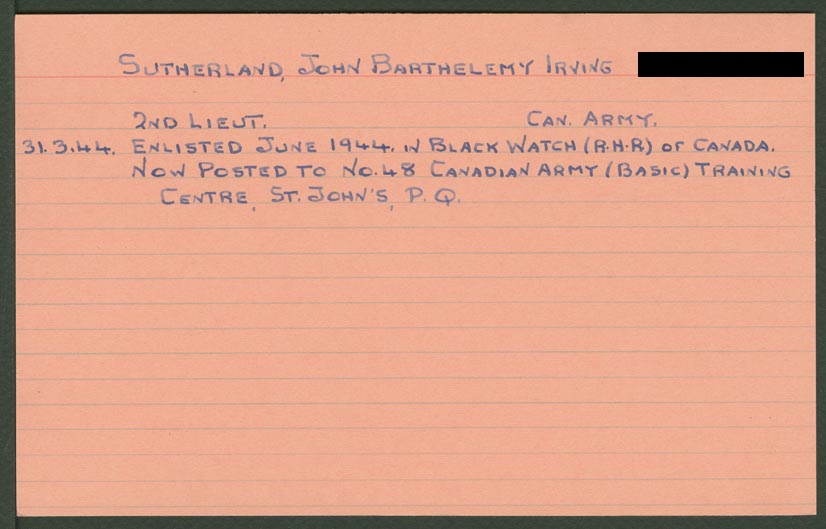 SUTHERLAND, JOHN BARTHELEMY IRVING
2ND LIEUT. CAN. ARMY.
31.3.44. ENLISTED JUNE 1944. IN BLACK WATCH (R.H.R) OF CANADA.
NOW POSTED TO NO.48 CANADIAN ARMY (BASIC) TRAINING
CENTRE, ST. JOHN'S, P.Q.